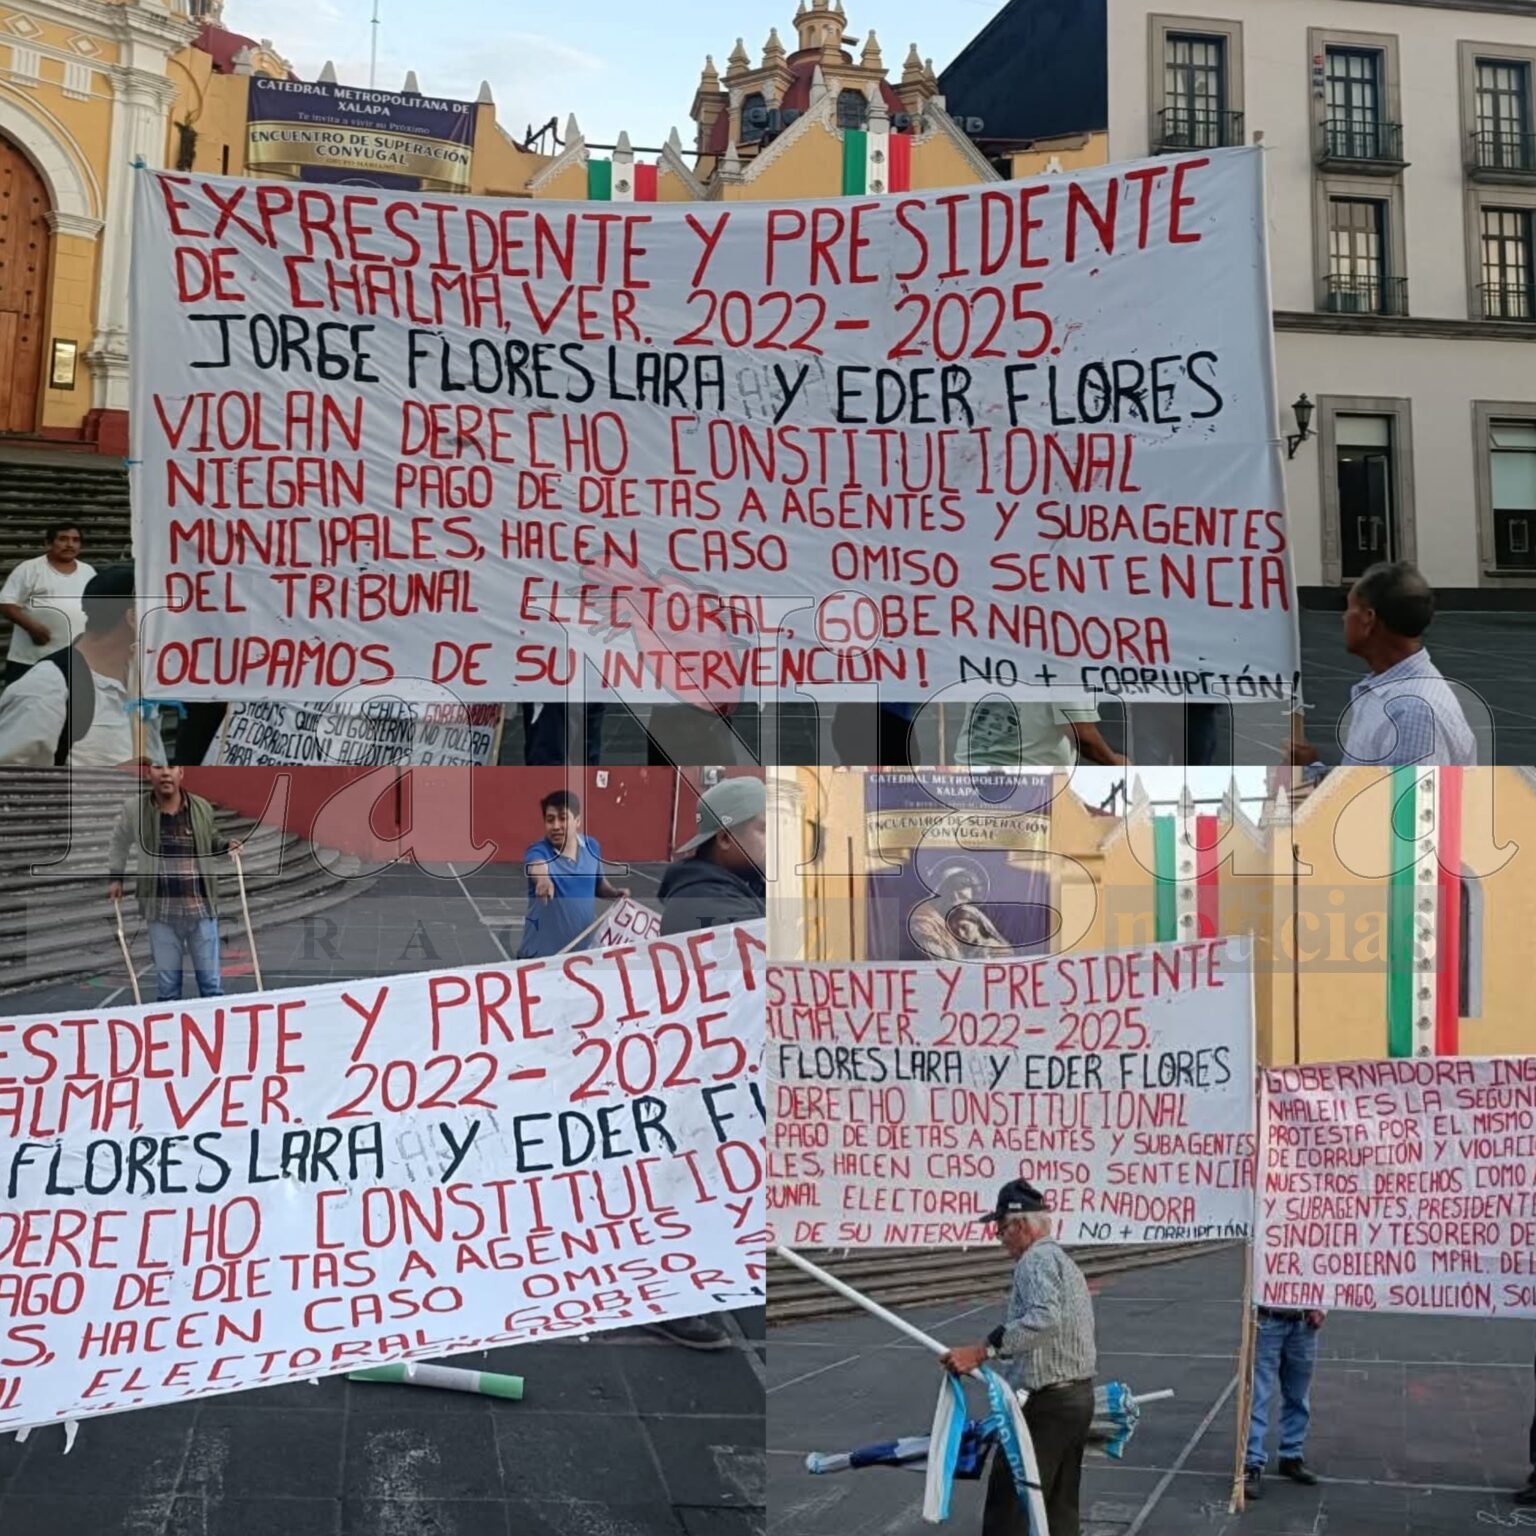 CATEDRAL METROPOLITANA DE
XALAPA
Te invita a vivir su Próximo
ENCUENTRO DE SUPERACIÓN
CONYUGAL
EXPRESIDENTE Y PRESIDENTE
DE CHALMA, VER. 2022-2025.
JORGE FLORES LARA Y EDER FLORES
VIOLAN DERECHO CONSTITUCIONAL
NIEGAN PAGO DE DIETAS A AGENTES Y SUBAGENTES
MUNICIPALES, HACEN CASO OMISO SENTENCIA
DEL TRIBUNAL ELECTORAL, GOBERNADORA
OCUPAMOS DE SU INTERVENCIÓN! NO + CORRUPCIÓN!
MUNICIPALES GOBERNADORA
SABEMOS QUE SU GOBIERNO NO TOLERA
LA CORRUPCIÓN! ACUDIMOS A USTED
La Nigua
VERACRUZ noticias
GOB
ESIDENTE Y PRESIDEN
ALMA, VER. 2022-2025.
FLORES LARA Y EDER FL
DERECHO CONSTITUCIO
AGO DE DIETAS A AGENTES Y S
S, HACEN CASO OMISO
AL ELECTORAL, GOBERN
CATEDRAL METROPOLITANA DE
XALAPA
ENCUENTRO DE SUPERACIÓN
CONYUGAL
SIDENTE Y PRESIDENTE
ALMA, VER. 2022-2025.
FLORES LARA Y EDER FLORES
DERECHO CONSTITUCIONAL
PAGO DE DIETAS A AGENTES Y SUBAGENTES
LES, HACEN CASO OMISO SENTENCIA
BUNAL ELECTORAL, BERNADORA
S DE SU INTERVEN ! NO + CORRUPCIÓN!
GOBERNADORA ING
NHALE!! ES LA SEGUN
PROTESTA POR EL MISMO
DE CORRUPCIÓN Y VIOLACI
NUESTROS DERECHOS COMO
Y SUBAGENTES, PRESIDENT
SÍNDICA Y TESORERO DE
VER. GOBIERNO MPAL. DEL
NIEGAN PAGO, SOLUCIÓN, SOL